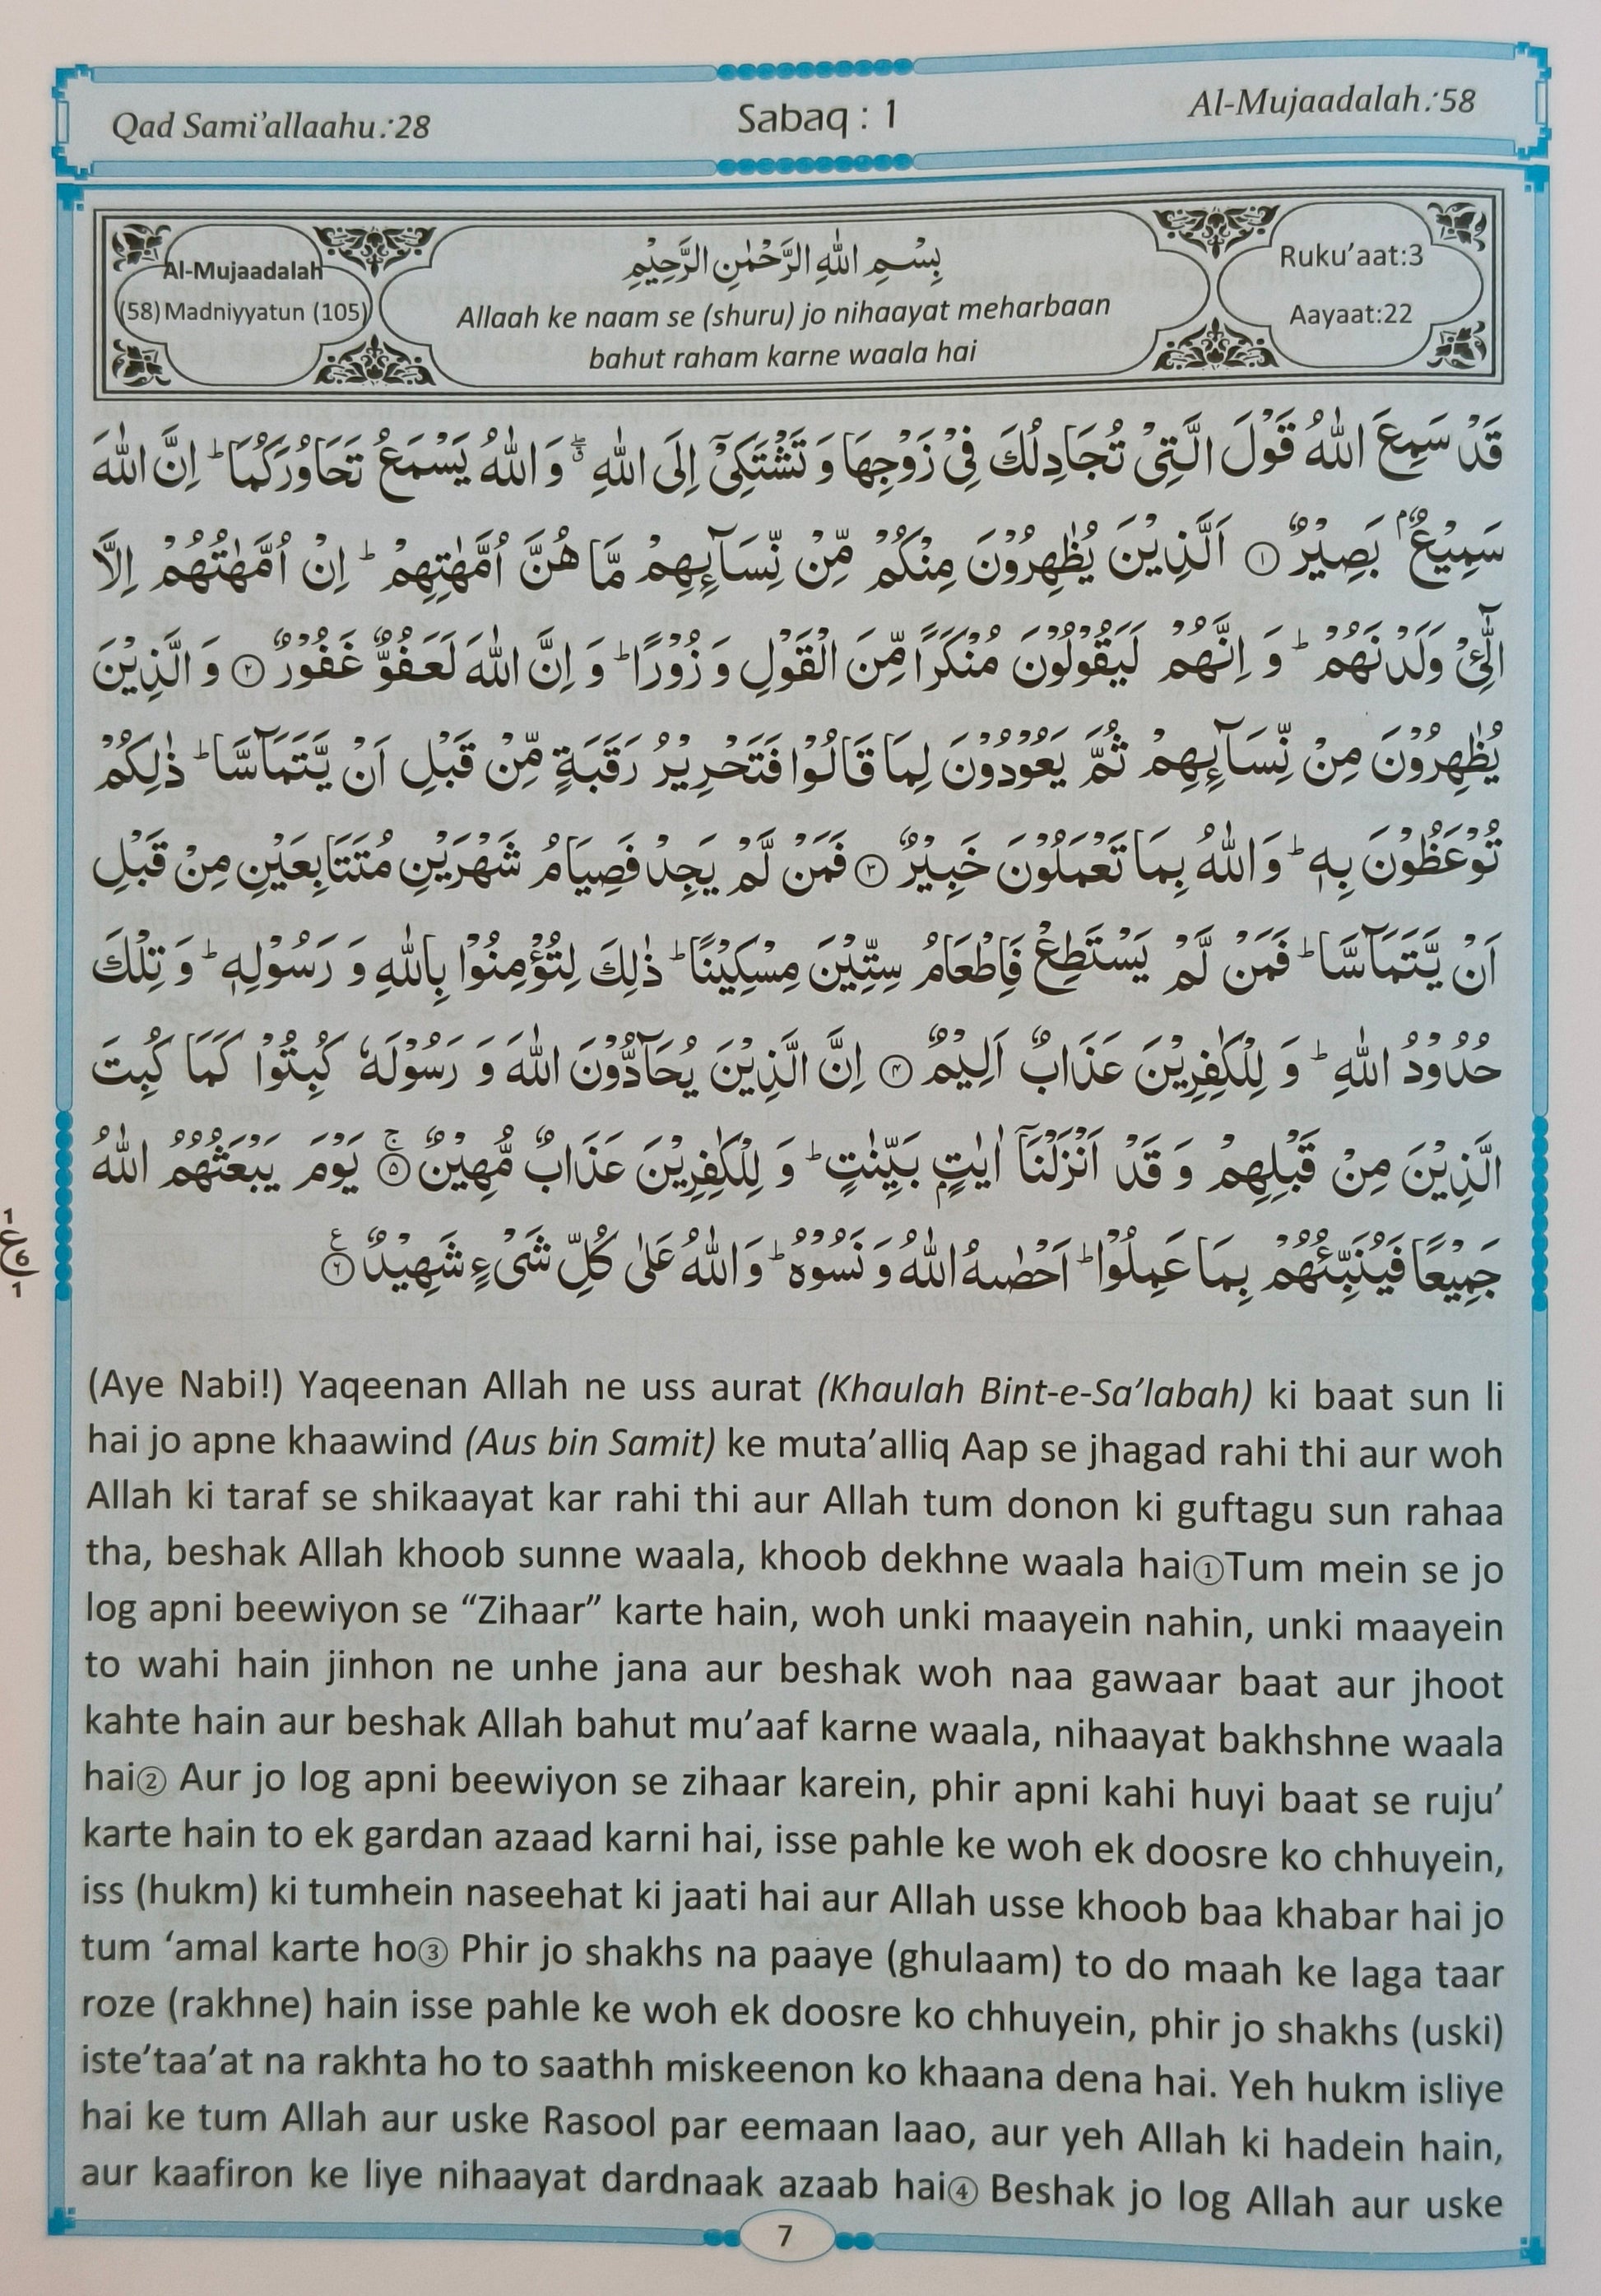 Qad Sami’allaahu:28
Sabaq : 1
Al-Mujaadalah:58
Al-Mujaadalah
(58) Madniyyatun (105)
بِسْمِ اللهِ الرَّحْمٰنِ الرَّحِيْمِ
Allaah ke naam se (shuru) jo nihaayat meharbaan
bahut raham karne waala hai
Ruku’aat:3
Aayaat:22
قَدْ سَمِعَ اللهُ قَوْلَ الَّتِيْ تُجَادِلُكَ فِيْ زَوْجِهَا وَ تَشْتَكِيْٓ اِلَى اللهِ ۖۗ وَ اللهُ يَسْمَعُ تَحَاوُرَكُمَا ؕ اِنَّ اللهَ
سَمِيْعٌۢ بَصِيْرٌ ① اَلَّذِيْنَ يُظٰهِرُوْنَ مِنْكُمْ مِّنْ نِّسَآىِٕهِمْ مَّا هُنَّ اُمَّهٰتِهِمْ ؕ اِنْ اُمَّهٰتُهُمْ اِلَّا
الّٰٓـِٔيْ وَلَدْنَهُمْ ؕ وَ اِنَّهُمْ لَيَقُوْلُوْنَ مُنْكَرًا مِّنَ الْقَوْلِ وَ زُوْرًا ؕ وَ اِنَّ اللهَ لَعَفُوٌّ غَفُوْرٌ ② وَ الَّذِيْنَ
يُظٰهِرُوْنَ مِنْ نِّسَآىِٕهِمْ ثُمَّ يَعُوْدُوْنَ لِمَا قَالُوْا فَتَحْرِيْرُ رَقَبَةٍ مِّنْ قَبْلِ اَنْ يَّتَمَآسَّا ؕ ذٰلِكُمْ
تُوْعَظُوْنَ بِهٖ ؕ وَ اللهُ بِمَا تَعْمَلُوْنَ خَبِيْرٌ ③ فَمَنْ لَّمْ يَجِدْ فَصِيَامُ شَهْرَيْنِ مُتَتَابِعَيْنِ مِنْ قَبْلِ
اَنْ يَّتَمَآسَّا ؕ فَمَنْ لَّمْ يَسْتَطِعْ فَاِطْعَامُ سِتِّيْنَ مِسْكِيْنًا ؕ ذٰلِكَ لِتُؤْمِنُوْا بِاللهِ وَ رَسُوْلِهٖ ؕ وَ تِلْكَ
حُدُوْدُ اللهِ ؕ وَ لِلْكٰفِرِيْنَ عَذَابٌ اَلِيْمٌ ④ اِنَّ الَّذِيْنَ يُحَآدُّوْنَ اللهَ وَ رَسُوْلَهٗ كُبِتُوْا كَمَا كُبِتَ
الَّذِيْنَ مِنْ قَبْلِهِمْ وَ قَدْ اَنْزَلْنَآ اٰيٰتٍۭ بَيِّنٰتٍ ؕ وَ لِلْكٰفِرِيْنَ عَذَابٌ مُّهِيْنٌ ⑤ۚ يَوْمَ يَبْعَثُهُمُ اللهُ
جَمِيْعًا فَيُنَبِّئُهُمْ بِمَا عَمِلُوْا ؕ اَحْصٰىهُ اللهُ وَ نَسُوْهُ ؕ وَ اللهُ عَلٰى كُلِّ شَيْءٍ شَهِيْدٌ ⑥ ع
1
ع 6
1
(Aye Nabi!) Yaqeenan Allah ne uss aurat (Khaulah Bint-e-Sa’labah) ki baat sun li
hai jo apne khaawind (Aus bin Samit) ke muta’alliq Aap se jhagad rahi thi aur woh
Allah ki taraf se shikaayat kar rahi thi aur Allah tum donon ki guftagu sun rahaa
tha, beshak Allah khoob sunne waala, khoob dekhne waala hai①Tum mein se jo
log apni beewiyon se “Zihaar” karte hain, woh unki maayein nahin, unki maayein
to wahi hain jinhon ne unhe jana aur beshak woh naa gawaar baat aur jhoot
kahte hain aur beshak Allah bahut mu’aaf karne waala, nihaayat bakhshne waala
hai② Aur jo log apni beewiyon se zihaar karein, phir apni kahi huyi baat se ruju’
karte hain to ek gardan azaad karni hai, isse pahle ke woh ek doosre ko chhuyein,
iss (hukm) ki tumhein naseehat ki jaati hai aur Allah usse khoob baa khabar hai jo
tum ‘amal karte ho③ Phir jo shakhs na paaye (ghulaam) to do maah ke laga taar
roze (rakhne) hain isse pahle ke woh ek doosre ko chhuyein, phir jo shakhs (uski)
iste’taa’at na rakhta ho to saathh miskeenon ko khaana dena hai. Yeh hukm isliye
hai ke tum Allah aur uske Rasool par eemaan laao, aur yeh Allah ki hadein hain,
aur kaafiron ke liye nihaayat dardnaak azaab hai④ Beshak jo log Allah aur uske
7